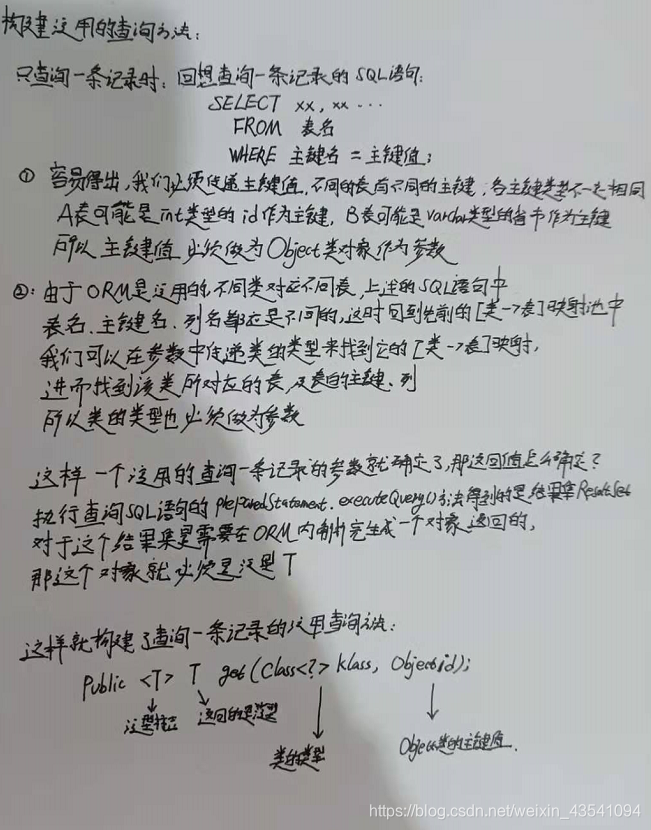 构建通用的查询方法:
只查询一条记录时: 回想查询一条记录的SQL语句:
SELECT xx, xx ...
FROM 表名
WHERE 主键名 = 主键值;
① 容易得出, 我们必须传递主键值, 不同的表有不同的主键, 各主键类型不一定相同
A表可能是int类型的id作为主键, B表可能是varchar类型的 作为主键
所以 主键值 必须做为Object类对象作为参数
②: 由于ORM是通用的, 不同类对应不同表, 上述的SQL语句中
表名、主键名、列名都应是不同的, 这时回到先前的[类→表]映射池中
我们可以在参数中传递类的类型来找到它的[类→表]映射,
进而找到该类所对应的表, 及表的主键、列
所以类的类型也必须做为参数
这样一个通用的查询一条记录的参数就确定了, 那返回值怎么确定?
执行查询SQL语句的preparedStatement.executeQuery()方法得到的是结果集ResultSet
对于这个结果集是需要在ORM内部制完生成一个对象返回的,
那这个对象就必须是泛型T
这样就构建了查询一条记录的通用查询方法:
Public <T> T get(Class<?> klass, Object id);
泛型 返回的是泛型
类的类型 Object类的主键值.
https://blog.csdn.net/weixin_43541094